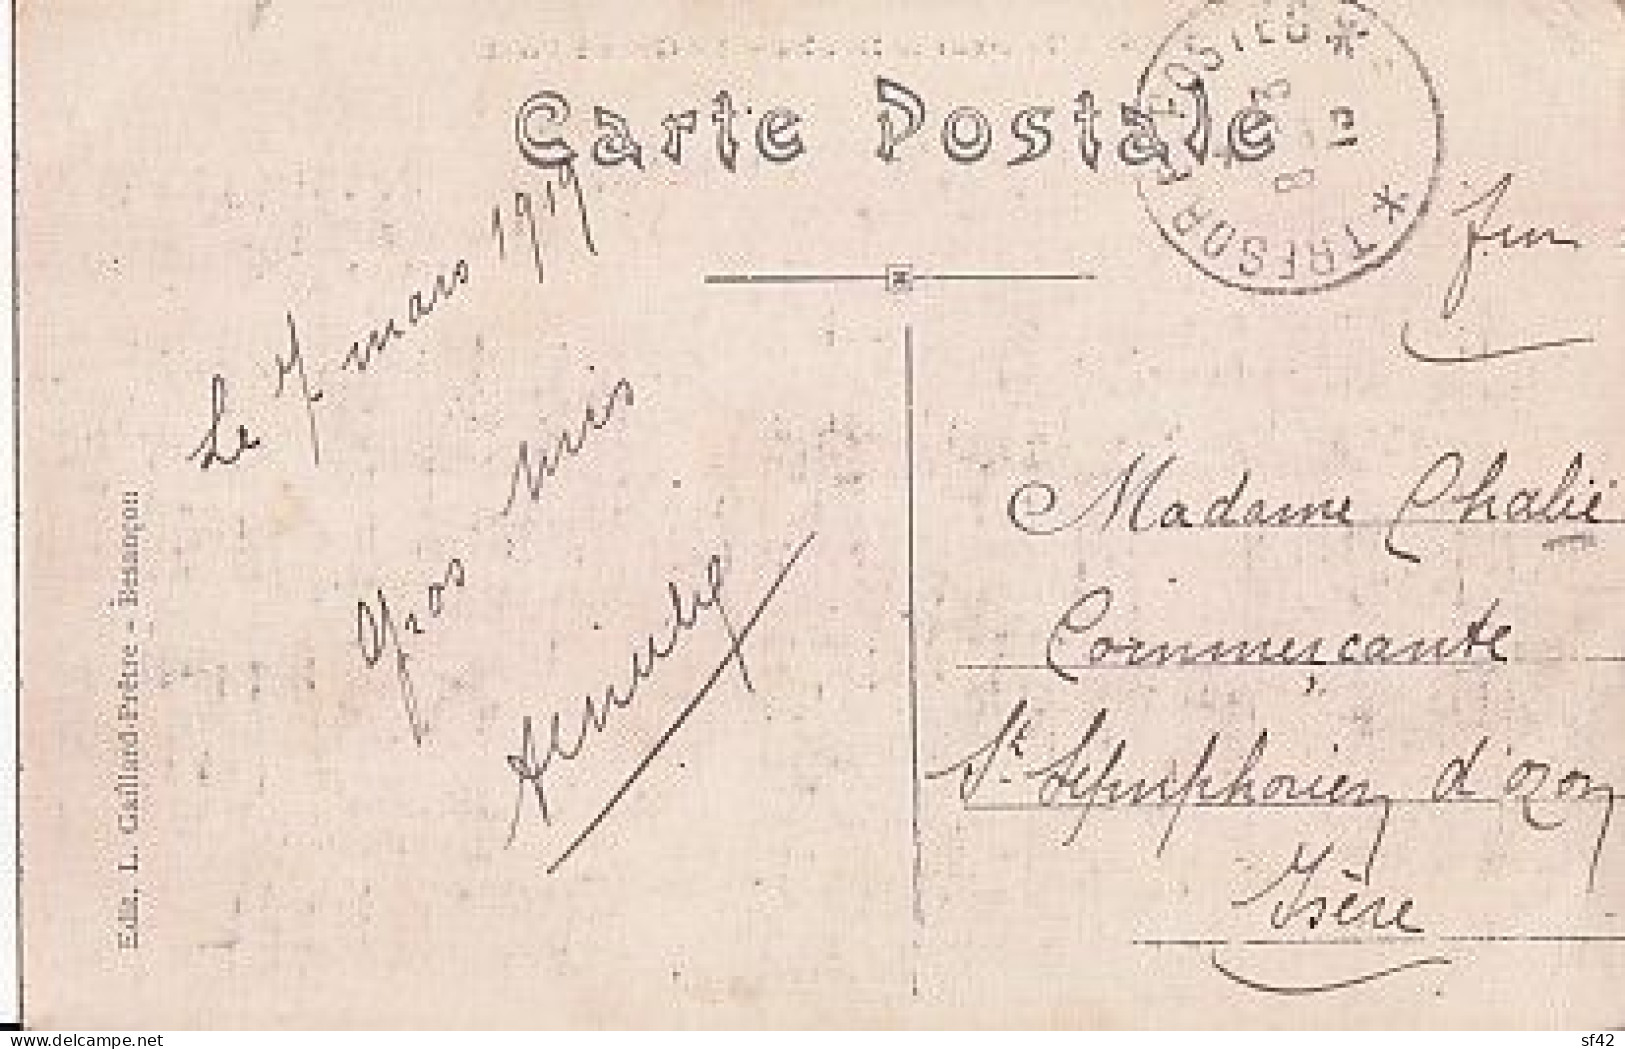 Carte Postale
TRESOR ET POSTES
8 3
Le 7 mars 1919
f.m
Gros mis
Madame Chalié
Commerçante
St Symphorien d'ozon
Isère
Edit. L. Gaillard-Prêtre - Besançon
delcampe.net
sf42